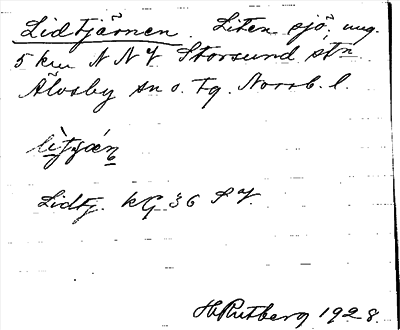 Lidtjärnen. Liten sjö, ung.
5 km N N V Storsund stn
Älvsby sn o. tg. Norrb. l.
Lidtj. kG 36 SV
H Rutberg 1928.